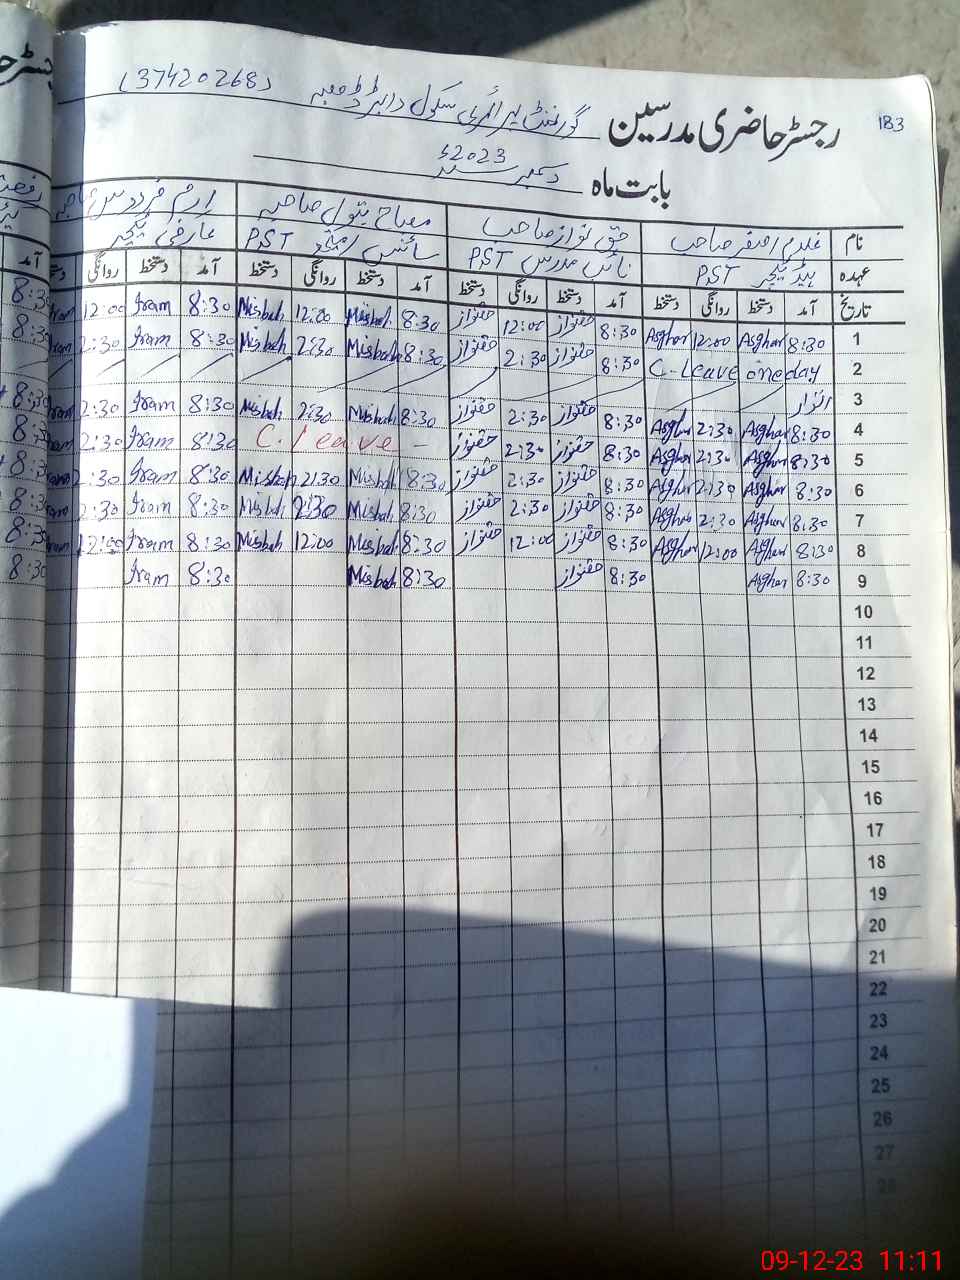 183
رجسٹر حاضری مدرسین گورنمنٹ پرائمری سکول (37420268)
بابت ماہ دسمبر سنہ 2023ء
نام غلام اصغر صاحب حق نواز صاحب مصباح بتول صاحبہ ارم فردوس صاحبہ
عہدہ ہیڈ ٹیچر PST نائب مدرس PST PST عارضی ٹیچر
تاریخ آمد دستخط روانگی دستخط آمد دستخط روانگی دستخط آمد دستخط روانگی دستخط آمد دستخط روانگی دستخط
1 8:30 Asghar 12:00 Asghar 8:30 حقنواز 12:00 حقنواز 8:30 Misbah 12:00 Misbah 8:30 Iram 12:00 Iram
2 C-Leave one day 8:30 حقنواز 2:30 حقنواز 8:30 Misbah 2:30 Misbah 8:30 Iram 2:30 Iram
3 اتوار
4 8:30 Asghar 2:30 Asghar 8:30 حقنواز 2:30 حقنواز 8:30 Misbah 2:30 Misbah 8:30 Iram 2:30 Iram
5 8:30 Asghar 2:30 Asghar 8:30 حقنواز 2:30 حقنواز C. Leave - 8:30 Iram 2:30 Iram
6 8:30 Asghar 2:30 Asghar 8:30 حقنواز 2:30 حقنواز 8:30 Misbah 2:30 Misbah 8:30 Iram 2:30 Iram
7 8:30 Asghar 2:30 Asghar 8:30 حقنواز 2:30 حقنواز 8:30 Misbah 2:30 Misbah 8:30 Iram 2:30 Iram
8 8:30 Asghar 12:00 Asghar 8:30 حقنواز 12:00 حقنواز 8:30 Misbah 12:00 Misbah 8:30 Iram 12:00 Iram
9 8:30 Asghar 8:30 حقنواز 8:30 Misbah 8:30 Iram
10
11
12
13
14
15
16
17
18
19
20
21
22
23
24
25
26
27
28
09-12-23 11:11